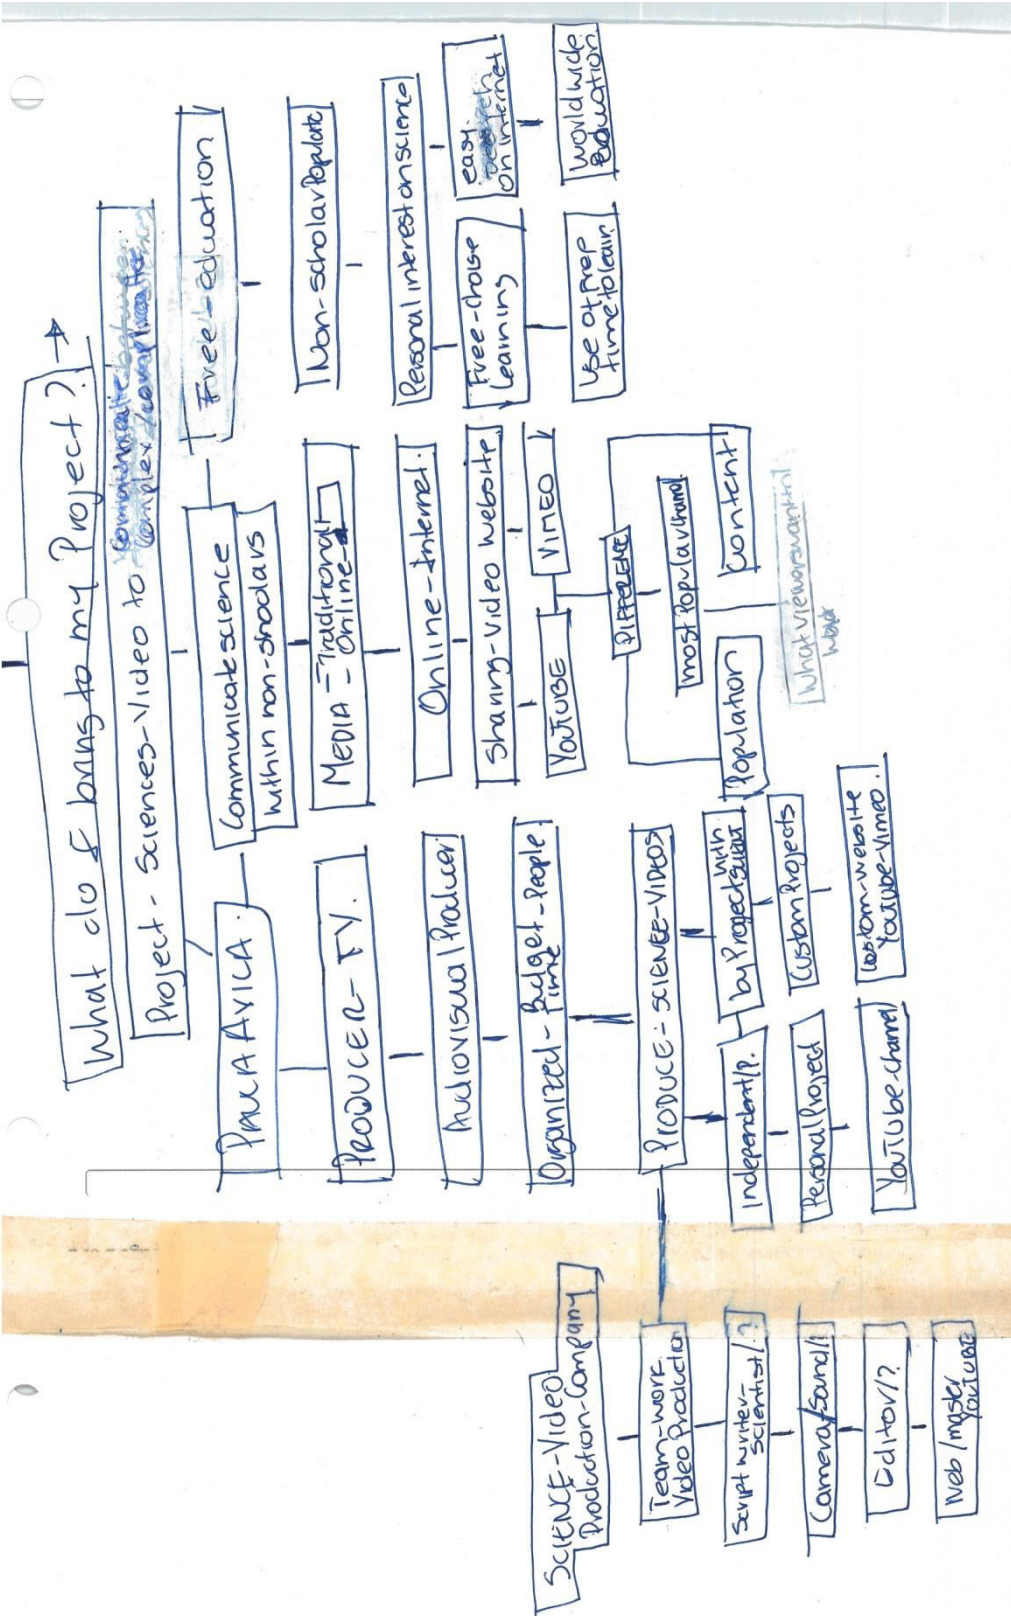 What do I bring to my Project?
Project - Sciences-Video to
complex/complicate
PAULA AVILA.
PRODUCER - TV.
Audiovisual Producer
Organized - Budget - People
Time
PRODUCE - SCIENCE-VIDEOS
Independent/P.
Personal Project
YouTube-channel
by Project with
Custom Projects
custom-website
YouTube-Vimeo.
SCIENCE-Video
Production-Company
Team-work
Video Production
Script writer-
scientist/?
Camera/sound/?
Editor/?
Web/master
YOUTUBE
Communicate science
within non-shoolars
MEDIA - Traditional
Online
Online-Internet.
Sharing-Video Website
YOUTUBE
VIMEO
DIFFERENCE
Population
most Popular channel
Content
What viewers want
Free-education
Non-scholar Populatio
Personal interest on science
Free-choise
Learning
Use of prep
time to learn
easy.
on internet
World wide
Education